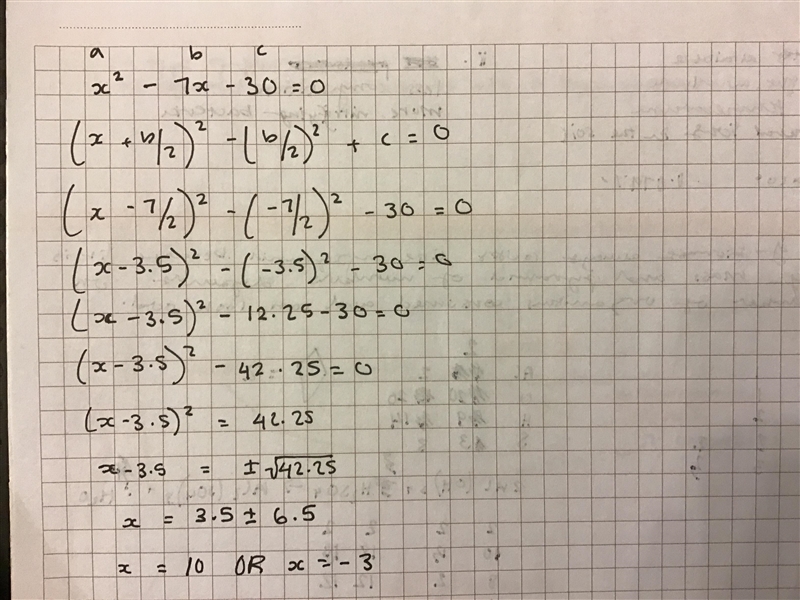 a b c
x² - 7x - 30 = 0
(x + b/2)² - (b/2)² + c = 0
(x - 7/2)² - (-7/2)² - 30 = 0
(x - 3.5)² - (-3.5)² - 30 = 0
(x - 3.5)² - 12.25 - 30 = 0
(x - 3.5)² - 42.25 = 0
(x - 3.5)² = 42.25
x - 3.5 = ±√42.25
x = 3.5 ± 6.5
x = 10 OR x = - 3